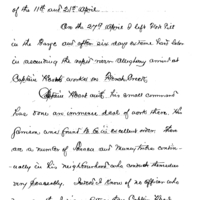 of the 11th and 21st April.
On the 27th April I left Fort Pitt
in the Barge and after six days extreme hard labor
in ascending the upper river Allegheny arrived at
Captain Heart's works on French Creek.
Captain Heart with his small command
has done an immense deal of work there. His
Garrison was found to be in excellent order. There
are a number of Seneca and Munsey Indians continu-
ally in his neighbourhood who conduct themselves
very peaceably. Indeed I know of no officer who